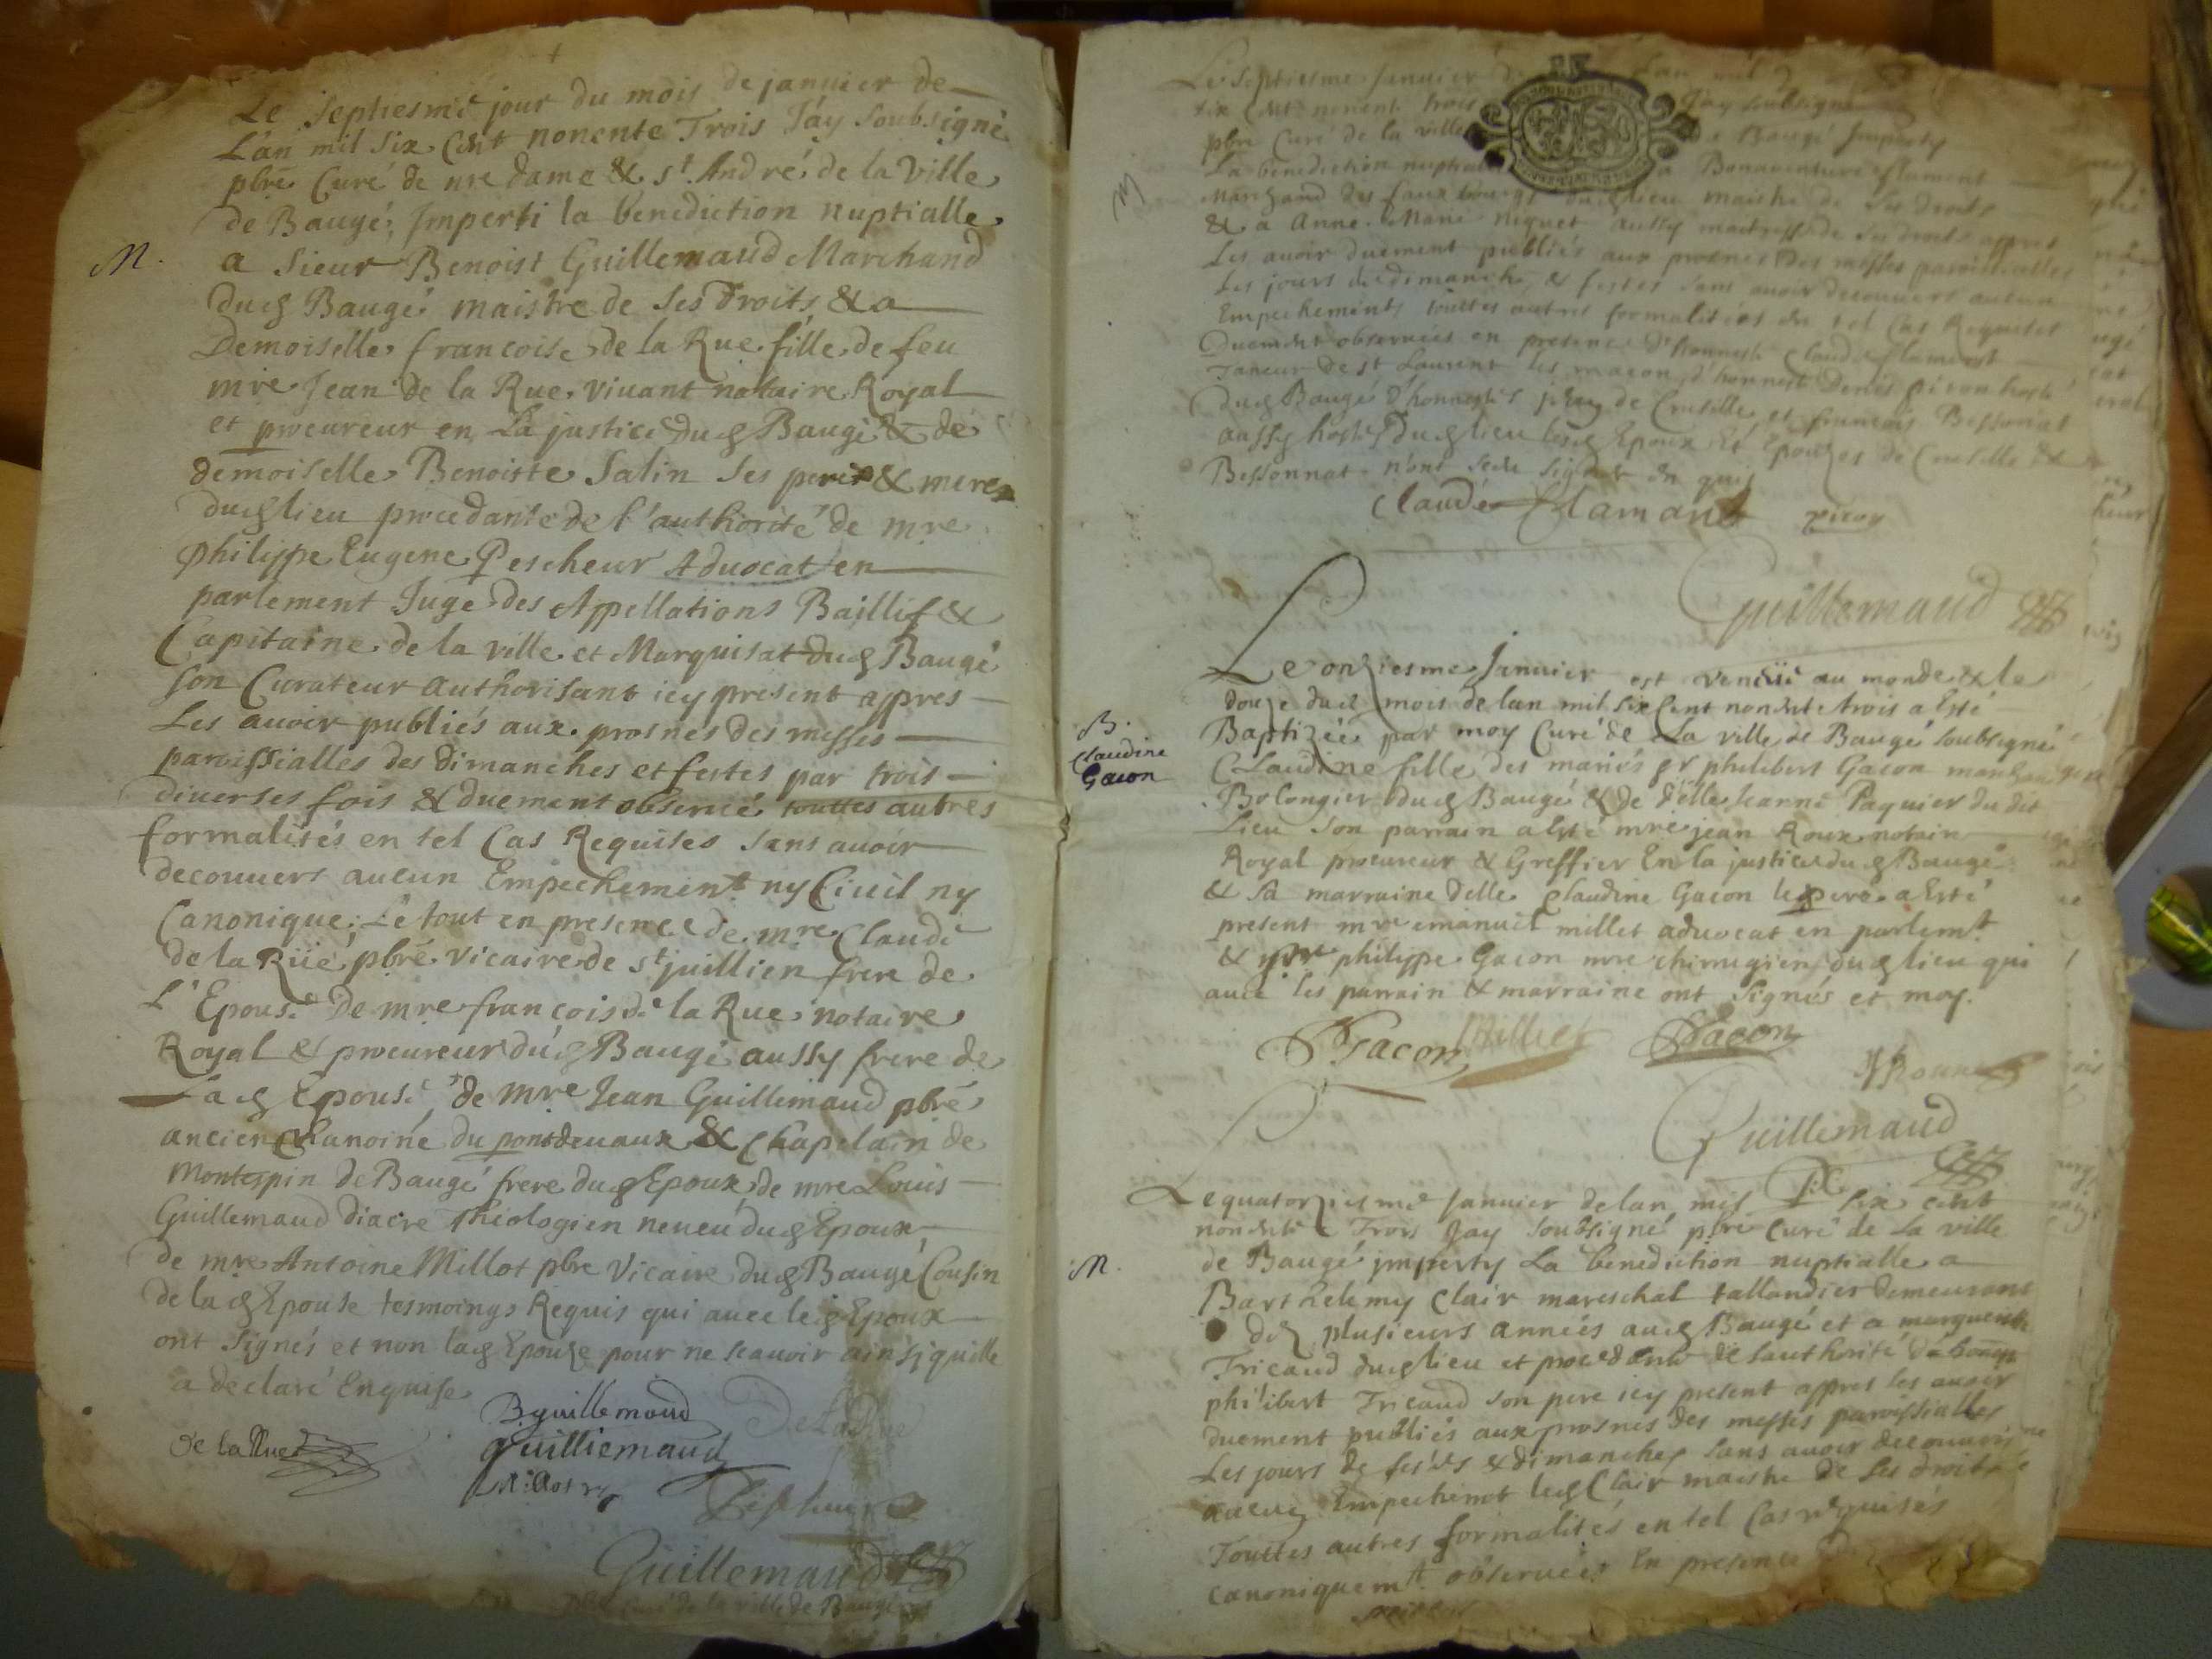 Le septiesme jour du mois de janvier de
L'an mil six cent nonente Trois J'ay soubsigné
pbre Curé de nre dame & st. André de la Ville
de Baugé, Imperti la benediction nuptialle
M.
a sieur Benoist Guillemaud Marchand
dud Baugé maistre de ses droits, & a
Demoiselle francoise de la Rue fille de feu
mre Jean de la Rue vivant notaire Royal
et procureur en La justice dud Baugé & de
demoiselle Benoiste Salin ses pere & mere
dud lieu procedante de l'authorité de mre
philippe Eugene Pescheur Advocat en
parlement Juge des Appellations Baillif &
Capitaine de la ville et Marquisat dud Baugé
son Curateur authorisant icy present appres
Les avoir publiés aux prosnes des messes
paroissialles des dimanches et festes par trois
diverses fois & duement observé touttes autres
formalités en tel Cas Requises sans avoir
decouvert aucun Empechement ny Civil ny
Canonique; Le tout en presence de mre Claude
de la Rüe pbre vicaire de st juillien frere de
L'Epouse De mre francois de la Rue notaire
Royal & procureur dud Baugé aussy frere de
Lad Epouse de mre Jean Guillemaud pbre
ancien Chanoine du pontdevaux & Chapelain de
Montespin de Baugé frere dud Epoux de mre Louis
Guillemaud diacre theologien neveu dud Epoux,
de mre Antoine Millot pbre Vicaire dud Baugé Cousin
de lad Epouse tesmoings Requis qui avec led Epoux
ont signés et non lad Epouze pour ne scavoir ainsj quille
a declaré Enquise
B guillemaud
De la Rue
de la Rue
guilliemaud
Millot
Pescheur
Guillemaud
pbre Curé de la ville de Baugé
Le Septiesme Janvier
six cent nonent trois J'ay soubsigné
pbre Curé de la ville de Baugé Imperty
La benediction nuptiale a Bonaventure flament
Marchand des fauxbourgs dud lieu maistre de ses droits
& a Anne Marie niquet aussy maitresse de ses droits appres
Les avoir duement publiés aux prosnes des messes paroissialles
Les jours de dimanche & festes sans avoir decouvert aucun
Empechements touttes autres formalités en tel Cas Requises
Duement observées en presence d'honneste Claude flament
Taneur de st Laurent les macon, d'honnest Denis piron hoste
dud Baugé d'honnestes de Cruselle et francois Bessonat
aussy hostes dud lieu lesd Epoux et Epouzes de Cruselle &
Bessonnat n'ont sceu signer
Claude flamant piron
Guillemaud
Le onziesme Janvier est venüe au monde & le
douze dud mois de lan mil six Cent nonente trois a Esté
B.
Claudine
Gacon
Baptizée par moy Curé de La ville de Baugé soubsigné
Claudine fille des mariés sr philibert Gacon marchand
Bolongier dud Baugé & de delle Jeanne Paquier du dit
Lieu Son parrain a Esté mre jean Roux notaire
Royal procureur & Greffier En la justice dud Baugé
& sa marraine Delle Claudine Gacon le pere a Esté
present mre emanuel millet advocat en parlemt
& philippe Gacon mre chirugien dud lieu qui
avec les parrain & marraine ont signés et moy.
Gacon Milliet Gacon
Roux
Guillemaud
Le quatorziesme Janvier de lan mil six cent
nonente Trois Jay soubsigné pbre Curé de La ville
M.
de Baugé jmperty La benediction nuptialle a
Barthelemy Clair mareschal tallandier demeurant
dez plusieurs années aud Baugé et a marguerite
Tricaud dud lieu et procedante de lauthorité
philibert Tricaud son pere icy present appres les avoir
duement publiés aux prosnes des messes paroissialles
Les jours de festes & dimanches sans avoir decouvert
aucun Empechemt led Clair maistre de ses droits
Touttes autres formalités en tel Cas requises
canoniquemt. observées En presence